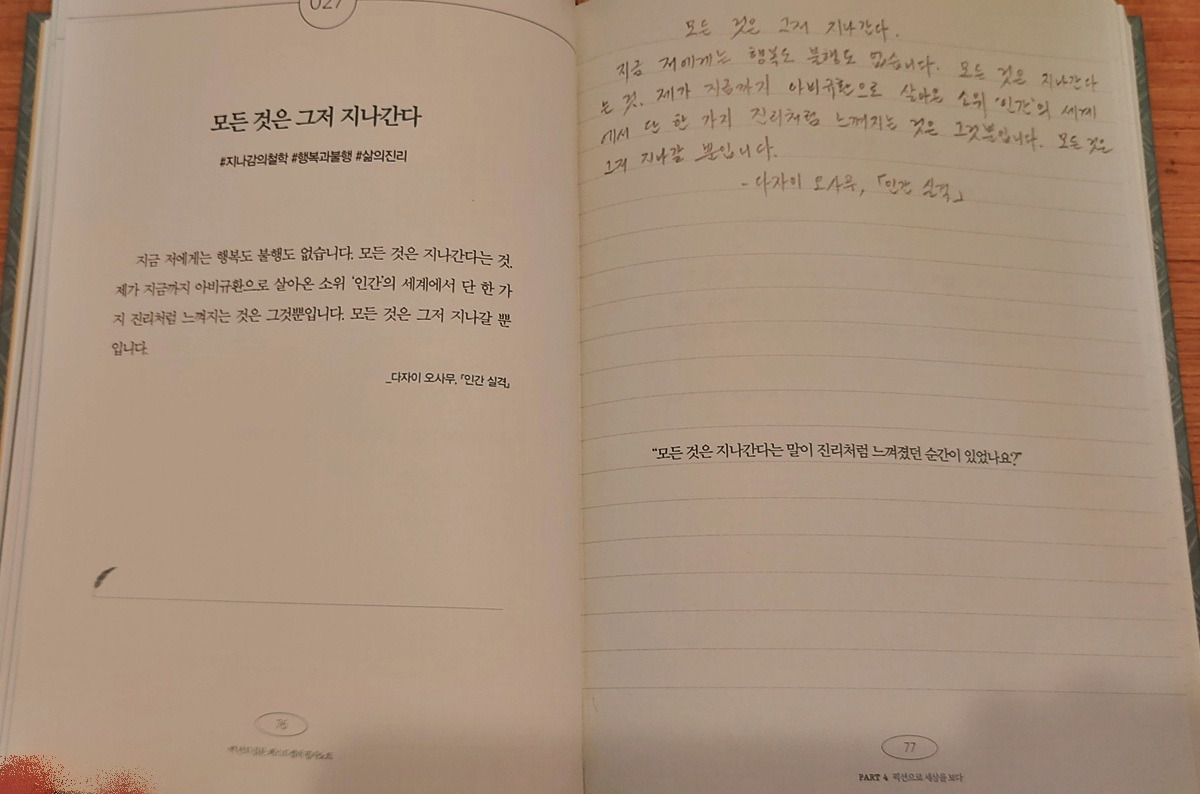 027
모든 것은 그저 지나간다
#지나감의철학 #행복과불행 #삶의진리
지금 저에게는 행복도 불행도 없습니다. 모든 것은 지나간다는 것.
제가 지금까지 아비규환으로 살아온 소위 '인간'의 세계에서 단 한 가
지 진리처럼 느껴지는 것은 그것뿐입니다. 모든 것은 그저 지나갈 뿐
입니다.
_다자이 오사무, 「인간 실격」
76
모든 것은 그저 지나간다.
지금 저에게는 행복도 불행도 없습니다. 모든 것은 지나간다
는 것. 제가 지금까지 아비규환으로 살아온 소위 '인간'의 세계
에서 단 한 가지 진리처럼 느껴지는 것은 그것뿐입니다. 모든 것은
그저 지나갈 뿐입니다.
- 다자이 오사무, 「인간 실격」
"모든 것은 지나간다는 말이 진리처럼 느껴졌던 순간이 있었나요?"
77
PART 4 픽션으로 세상을 보다